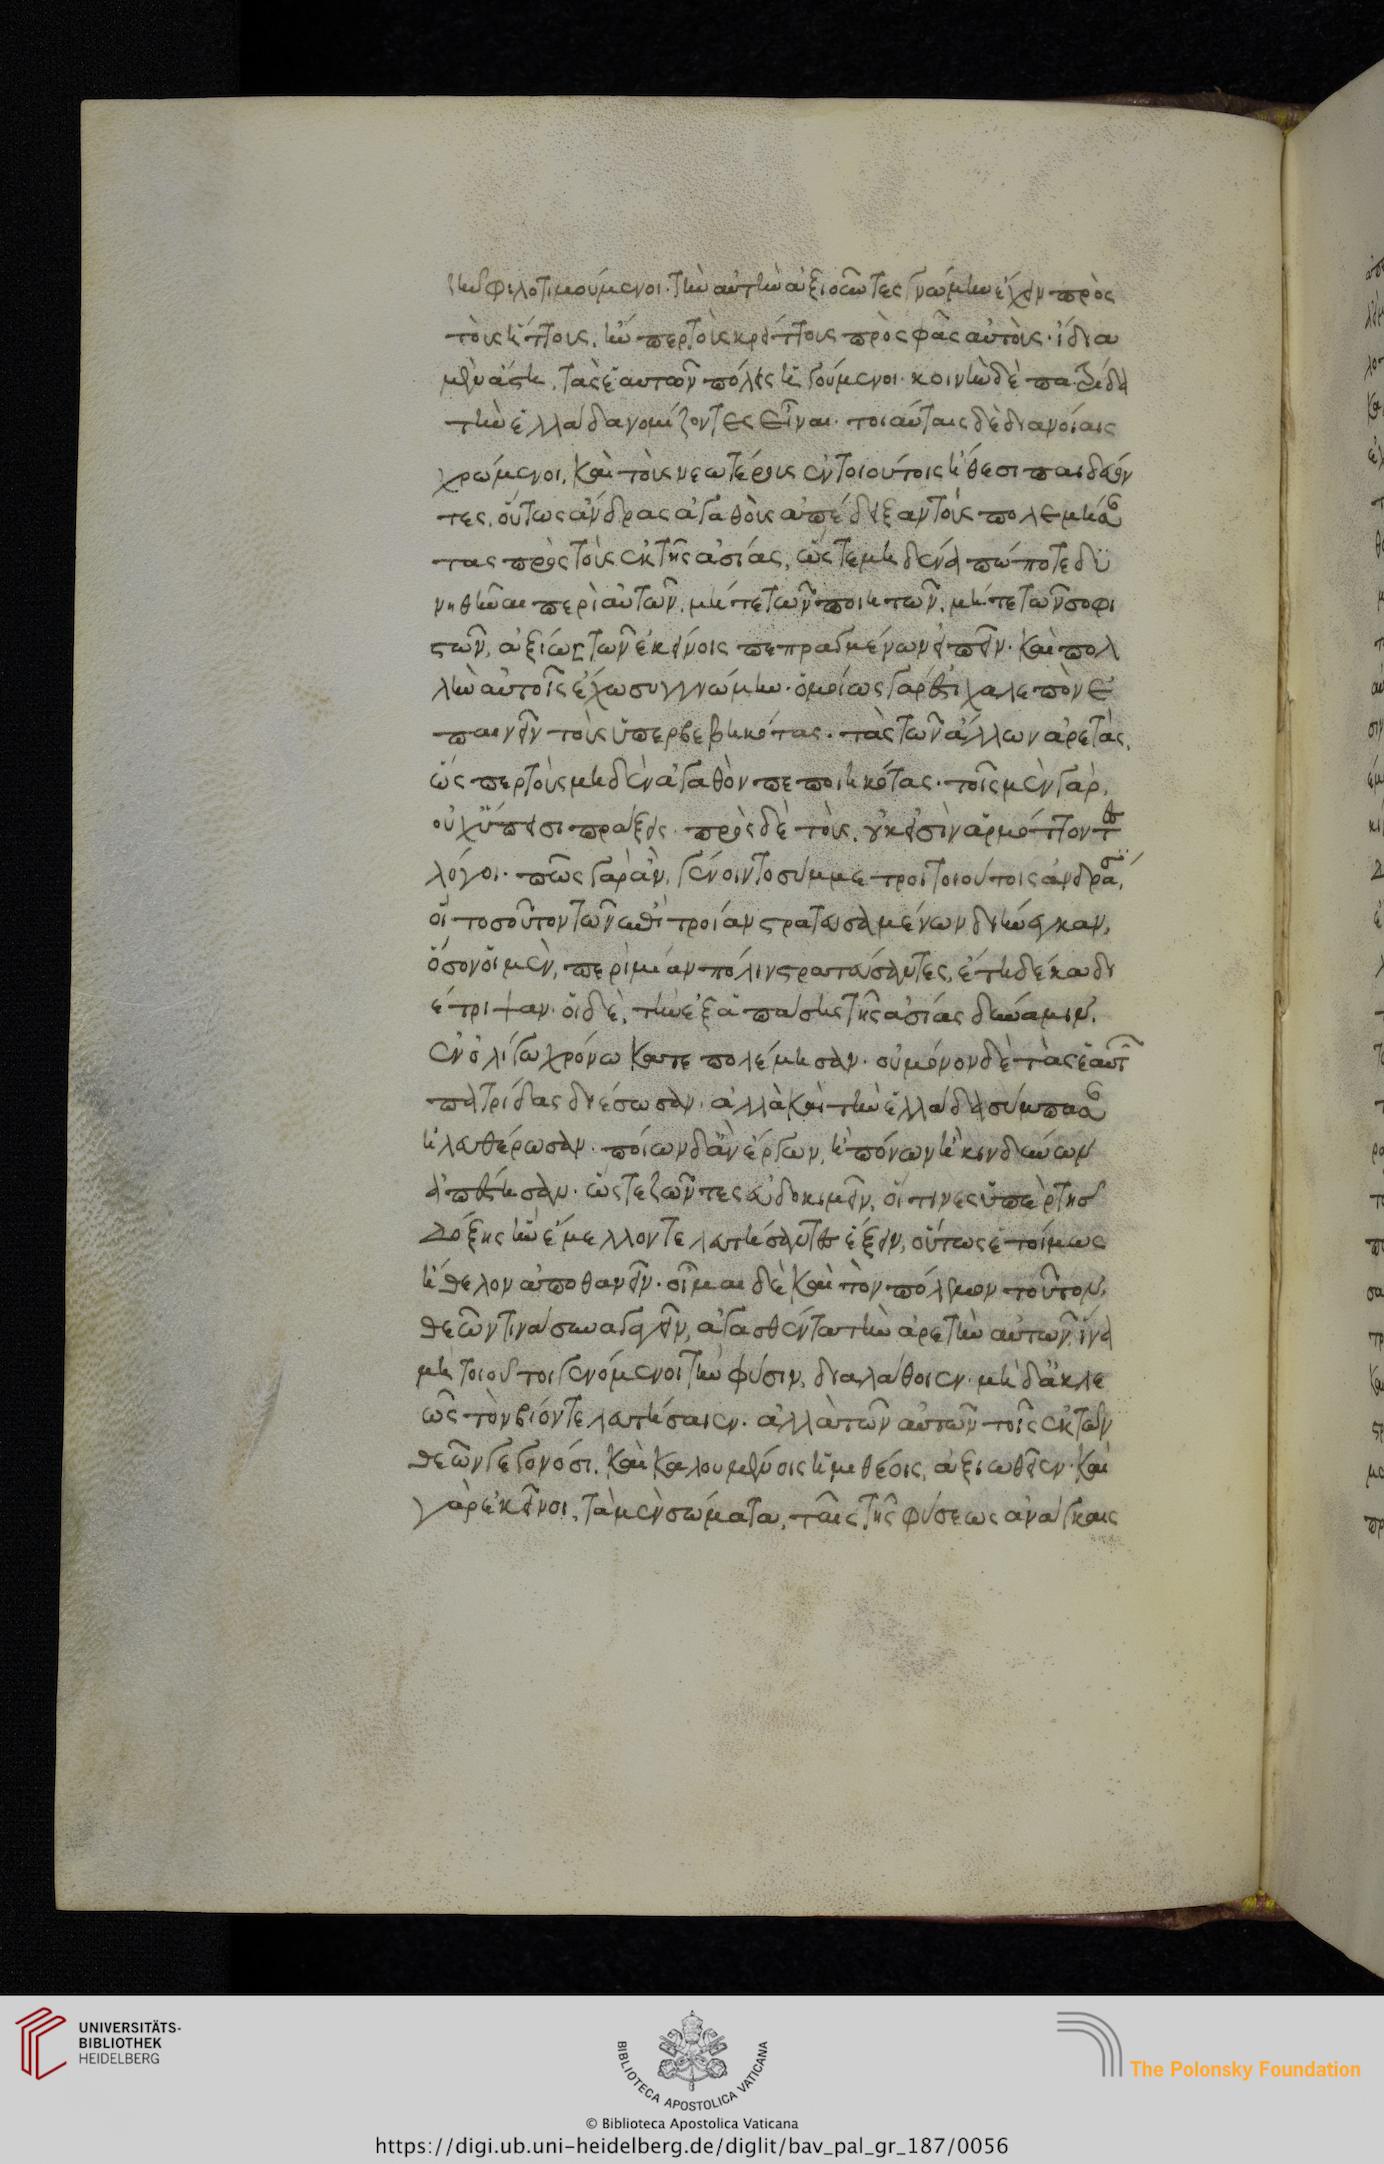 ζῆν φιλοτιμούμενοι· τὴν αὐτὴν ἀξιοῦντες γνώμην ἔχειν πρὸς
τοὺς ἥττους, ἥνπερ τοὺς κρείττους πρὸς σφᾶς αὐτοὺς· ἴδια
μὲν ἄστη, τὰς ἑαυτῶν πόλεις ἡγούμενοι· κοινὴν δὲ πατρίδα
τὴν ἑλλάδα νομίζοντες εἶναι· τοιαύταις δὲ διανοίαις
χρώμενοι, καὶ τοὺς νεωτέρους ἐν τοιούτοις ἤθεσι παιδεύον
τες, οὕτως ἄνδρας ἀγαθοὺς ἀπέδειξαν τοὺς πολεμήσαν
τας πρὸς τοὺς ἐκ τῆς ἀσίας, ὥστε μηδένα πώποτε δυ
νηθῆναι περὶ αὐτῶν, μήτε τῶν ποιητῶν, μήτε τῶν σοφι
στῶν, ἀξίως τῶν ἐκείνοις πεπραγμένων εἰπεῖν· καὶ πολ
λὴν αὐτοῖς ἔχω συγγνώμην· ὁμοίως γάρ ἐστι χαλεπὸν ἐ
παινεῖν τοὺς ὑπερβεβηκότας τὰς τῶν ἄλλων ἀρετὰς,
ὥσπερ τοὺς μηδὲν ἀγαθὸν πεποιηκότας· τοῖς μὲν γὰρ,
οὐχ ὕπεισι πράξεις· πρὸς δὲ τοὺς, οὐκ εἰσὶν ἁρμόττοντες
λόγοι· πῶς γὰρ ἂν, γένοιντο σύμμετροι τοιούτοις ἀνδράσιν,
οἳ τοσοῦτον τῶν ἐπὶ τροίαν στρατευσαμένων διήνεγκαν,
ὅσον οἱ μὲν, περὶ μίαν πόλιν στρατεύσαντες, ἔτη δέκα δι
έτριψαν· οἱ δὲ, τὴν ἐξ ἁπάσης τῆς ἀσίας δύναμιν,
ἐν ὀλίγω χρόνω κατεπολέμησαν· οὐ μόνον δὲ τὰς ἑαυτῶν
πατρίδας διέσωσαν· ἀλλὰ καὶ τὴν ἑλλάδα σύμπασαν
ἠλευθέρωσαν· ποίων δ' ἂν ἔργων, ἢ πόνων ἢ κινδύνων
ἀπέστησαν· ὥστε ζῶντες εὐδοκιμεῖν, οἵτινες ὑπὲρ τῆς
δόξης ἣν ἔμελλον τελευτήσαντες ἕξειν, οὕτως ἑτοίμως
ἤθελον ἀποθανεῖν· οἶμαι δὲ καὶ τὸν πόλεμον τοῦτον,
θεῶν τινὰ συναγαγεῖν, ἀγασθέντα τὴν ἀρετὴν αὐτῶν, ἵνα
μὴ τοιοῦτοι γενόμενοι τὴν φύσιν, διαλάθοιεν· μὴ δ' ἀκλε
ῶς τὸν βίον τελευτήσαιεν· ἀλλὰ τῶν αὐτῶν τοῖς ἐκ τῶν
θεῶν γεγονόσι, καὶ καλουμένοις ἡμιθέοις, ἀξιωθεῖεν· καὶ
γὰρ ἐκεῖνοι, τὰ μὲν σώματα, ταῖς τῆς φύσεως ἀνάγκαις
UNIVERSITÄTS-
BIBLIOTHEK
HEIDELBERG
BIBLIOTECA APOSTOLICA VATICANA
The Polonsky Foundation
© Biblioteca Apostolica Vaticana
https://digi.ub.uni-heidelberg.de/diglit/bav_pal_gr_187/0056